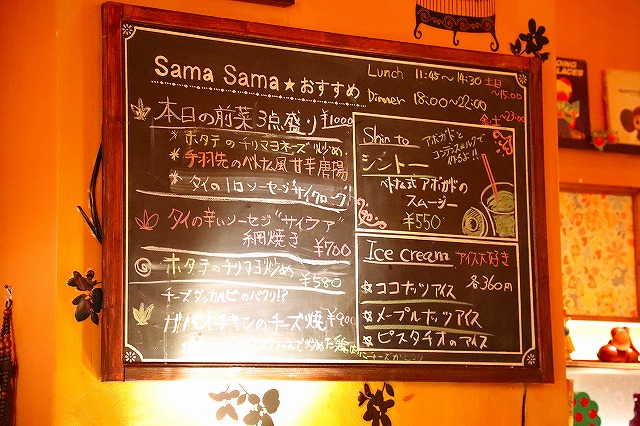 Sama Sama★おすすめ
Lunch 11:45〜14:30 土日
〜15:00
Dinner 18:00〜22:00
金・土〜23:00
本日の前菜3点盛り ¥1000
＊ホタテのチリマヨネーズ炒め
＊手羽先のベトナム風甘辛唐揚
＊タイのソーセージ"サイクローグ"
タイの辛いソーセージ"サイウア"
網焼き ¥700
ホタテのチリマヨ炒め ¥580
チーズダッカルビのパクリ!?
ガパオチキンのチーズ焼 ¥900
Shin to
シントー
アボガドと
コンデンスミルクで
作るよ!!
ベトナム式アボガドの
スムージー
¥550
Ice cream アイス大好き
各360円
☆ココナッツアイス
☆メープルナッツアイス
☆ピスタチオのアイス